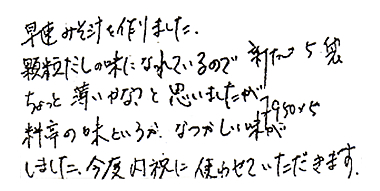 早速みそ汁を作りました.
顆粒だしの味になれているので 新たつ 5袋
ちょっと薄いかな?と思いましたが
7950×5
料亭の味というか、なつかしい味が
しました、今度内祝に使わせていただきます.